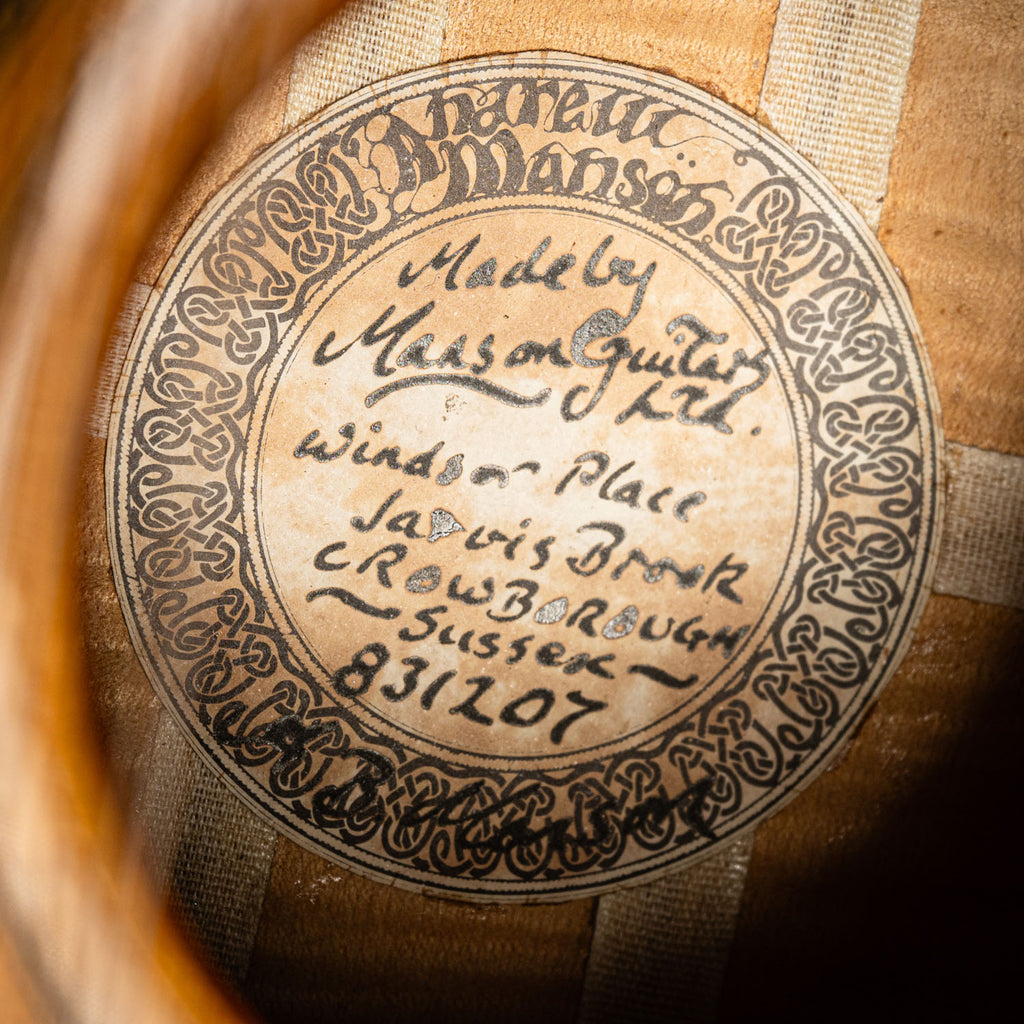 Andrew
Manson
Made by
Manson Guitars
Ltd.
Windsor Place
Jarvis Brook
CROWBOROUGH
Sussex
831207
A B Manson